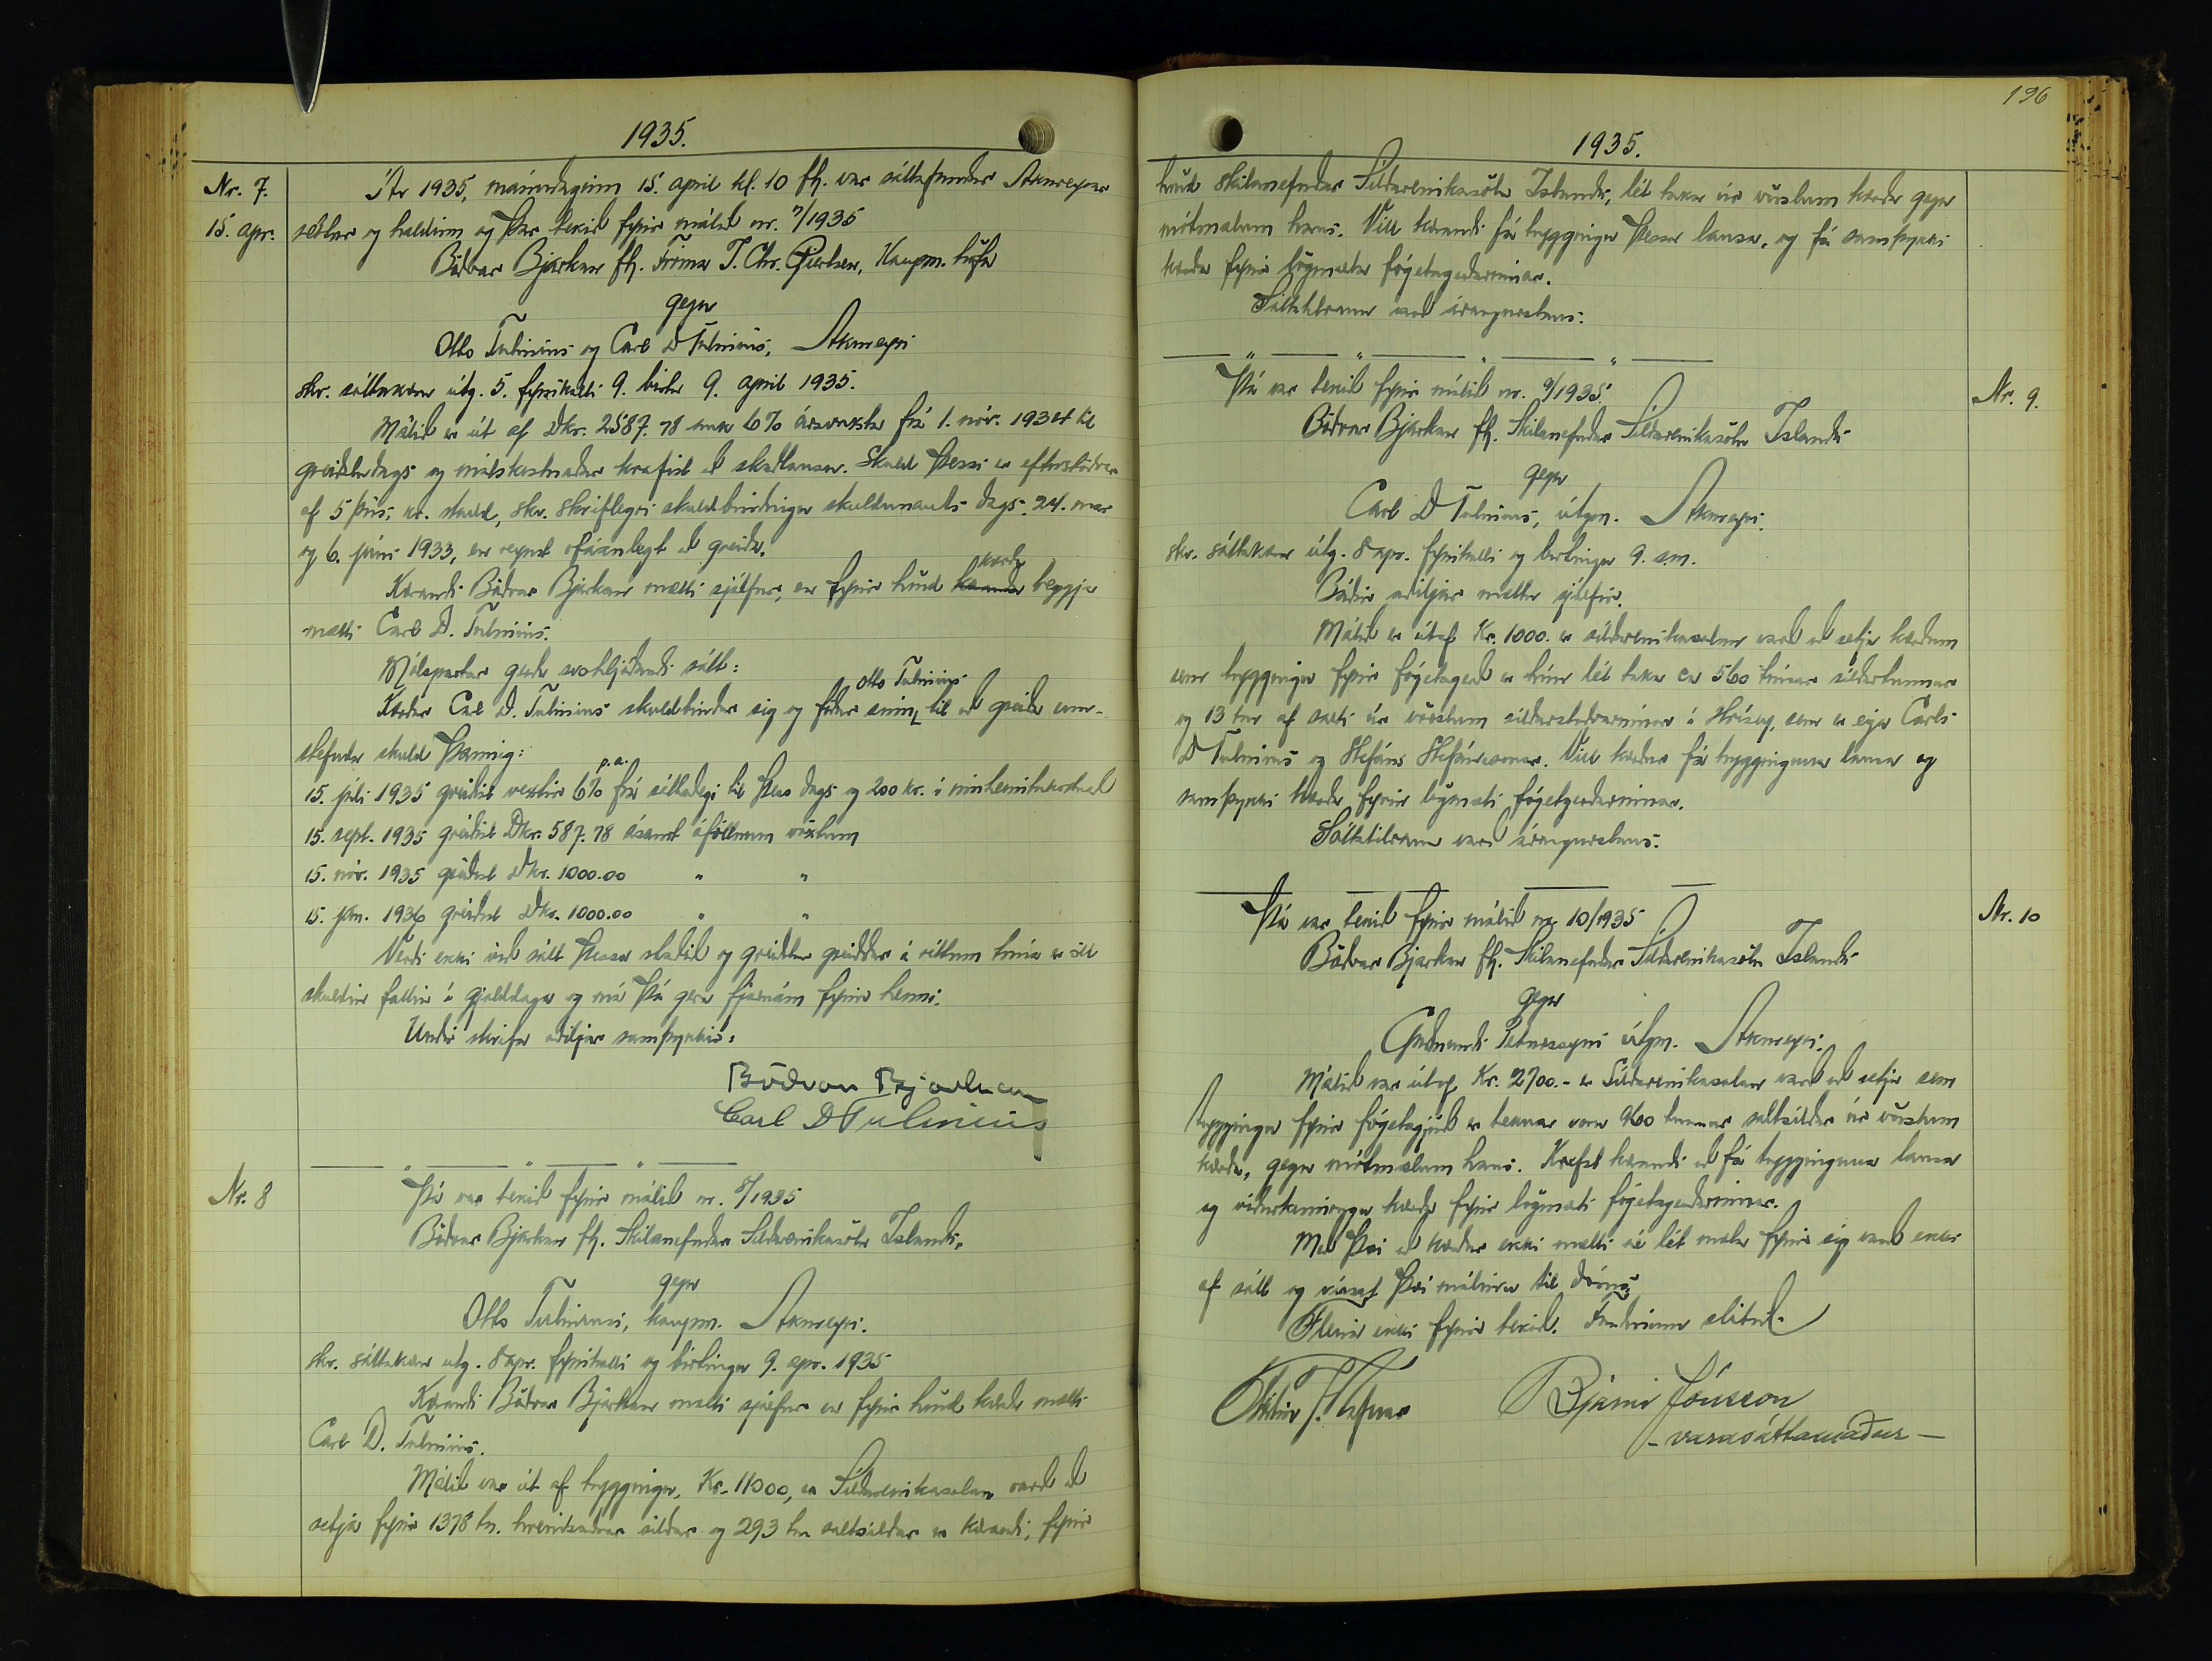 1935.
Nr. 7.
15. apr.
Ár 1935, mánudaginn 15. april kl. 10 fh. var sáttafundur Akureyrar
settur og haldinn og þar tekið fyrir málið nr. 7/1935
Böðvar Bjarkan fh. Firma J. Chr. Giertsen, Kaupm. höfn
gegn
Otto Tulinius og Carl D Tulinius, Akureyri
skv. sáttakæru útg. 5. fyrirkalli 9. birtu 9. april 1935.
Málið er út af Dkr. 2587.78 auk 6% ársvaxta frá 1. nóv. 1934 til
greiðsludags og málskostnaðar krafist að skaðlausu. Skuld þessi er eftirstöðvar
af 5 þús. kr. skuld, skv. skriflegri skuldbindingu skuldunauts dags. 24. mar
og 6. júní 1933, en reynst ófáanlegt að greiða.
Kærandi Böðvar Bjarkan mætti sjálfur, en fyrir hönd kærðu beggja
mætti Carl D. Tulinius.
Málspartar gerðu svohljóðandi sátt:
Kærður Carl D. Tulinius skuldbindur sig og föður sinn Otto Tulinius til að greiða um-
stefnda skuld þannig:
15. júli 1935 greiðist vextir 6% p.a. frá sáttadegi til þess dags og 200 kr. í málskostnað
15. sept. 1935 greiðist Dkr. 587.78 ásamt áföllnum vöxtum
15. nóv. 1935 greiðist Dkr. 1000.00 " "
15. jan. 1936 greiðist Dkr. 1000.00 " "
Verði ekki við sátt þessa staðið og greiðslur greiddar á réttum tíma er öll
skuldin fallin í gjalddaga og má þá gera fjárnám fyrir henni.
Undir skrifa aðiljar samþykkir:
Böðvar Bjarkan
Carl D Tulinius
Nr. 8
Þá var tekið fyrir málið nr. 8/1935
Böðvar Bjarkan fh. Skilanefndar Síldareinkasölu Islands.
gegn
Otto Tulinius, kaupm. Akureyri.
skv. sáttakæru útg. 8 apr. fyrirkalli og birtingu 9. apr. 1935
Kærandi Böðvar Bjarkan mætti sjálfur en fyrir hönd kærða mætti
Carl D. Tulinius.
Málið var út af tryggingu, Kr. 11000, er Síldareinkasalan varð að
setja fyrir 1378 tn. hreinsaðrar síldar og 293 tn saltsíldar er kærandi, fyrir
196
1935.
hönd skilanefndar Síldareinkasölu Islands, lét taka úr vörslum kærða gegn
mótmælum hans. Vill kærandi fá tryggingu þessa lausa, og fá samþykki
kærða fyrir lögmæti fógetagerðarinnar.
Sáttatilraun varð árangurslaus.
Þá var tekið fyrir málið nr. 9/1935.
Nr. 9.
Böðvar Bjarkan fh. Skilanefndar Síldareinkasölu Islands
gegn
Carl D Tulinius, útgm. Akureyri.
skv. sáttakæru útg. 8 apr. fyrirkalli og birtingu 9. s.m.
Báðir aðiljar mættu sjálfir.
Málið er útaf Kr. 1000. er síldareinkasalan varð að setja kærðum
sem tryggingu fyrir fógetagerð er hún lét taka ca 560 tómar síldartunnur
og 13 tnr af salti úr vörslum síldarstöðvarinnar í Hrísey, sem er eign Carls
D Tulinius og Stefáns Stefánssonar. Vill kærandi fá trygginguna lausa og
samþykki kærða fyrir lögmæti fógetagerðarinnar.
Sáttatilraun varð árangurslaus.
Þá var tekið fyrir málið nr 10/1935
Nr. 10
Böðvar Bjarkan fh. Skilanefndar Síldareinkasölu Islands
gegn
Guðmundi Péturssyni útgm. Akureyri.
Málið var útaf Kr. 2700.- er Síldareinkasalan varð að setja sem
tryggingu fyrir fógetagjörð er teknar voru 960 tunnur saltsíldar úr vörslum
kærða, gegn mótmælum hans. Krefst kærandi að fá trygginguna lausa
og viðurkenningu kærða fyrir lögmæti fógetagerðarinnar.
Með því að kærður ekki mætti né lét mæta fyrir sig varð ekki
af sátt og vísast því málinu til dóms.
Fleira ekki fyrir tekið. Fundinum slitið.
Bjarni Jónsson
- varasáttamaður -